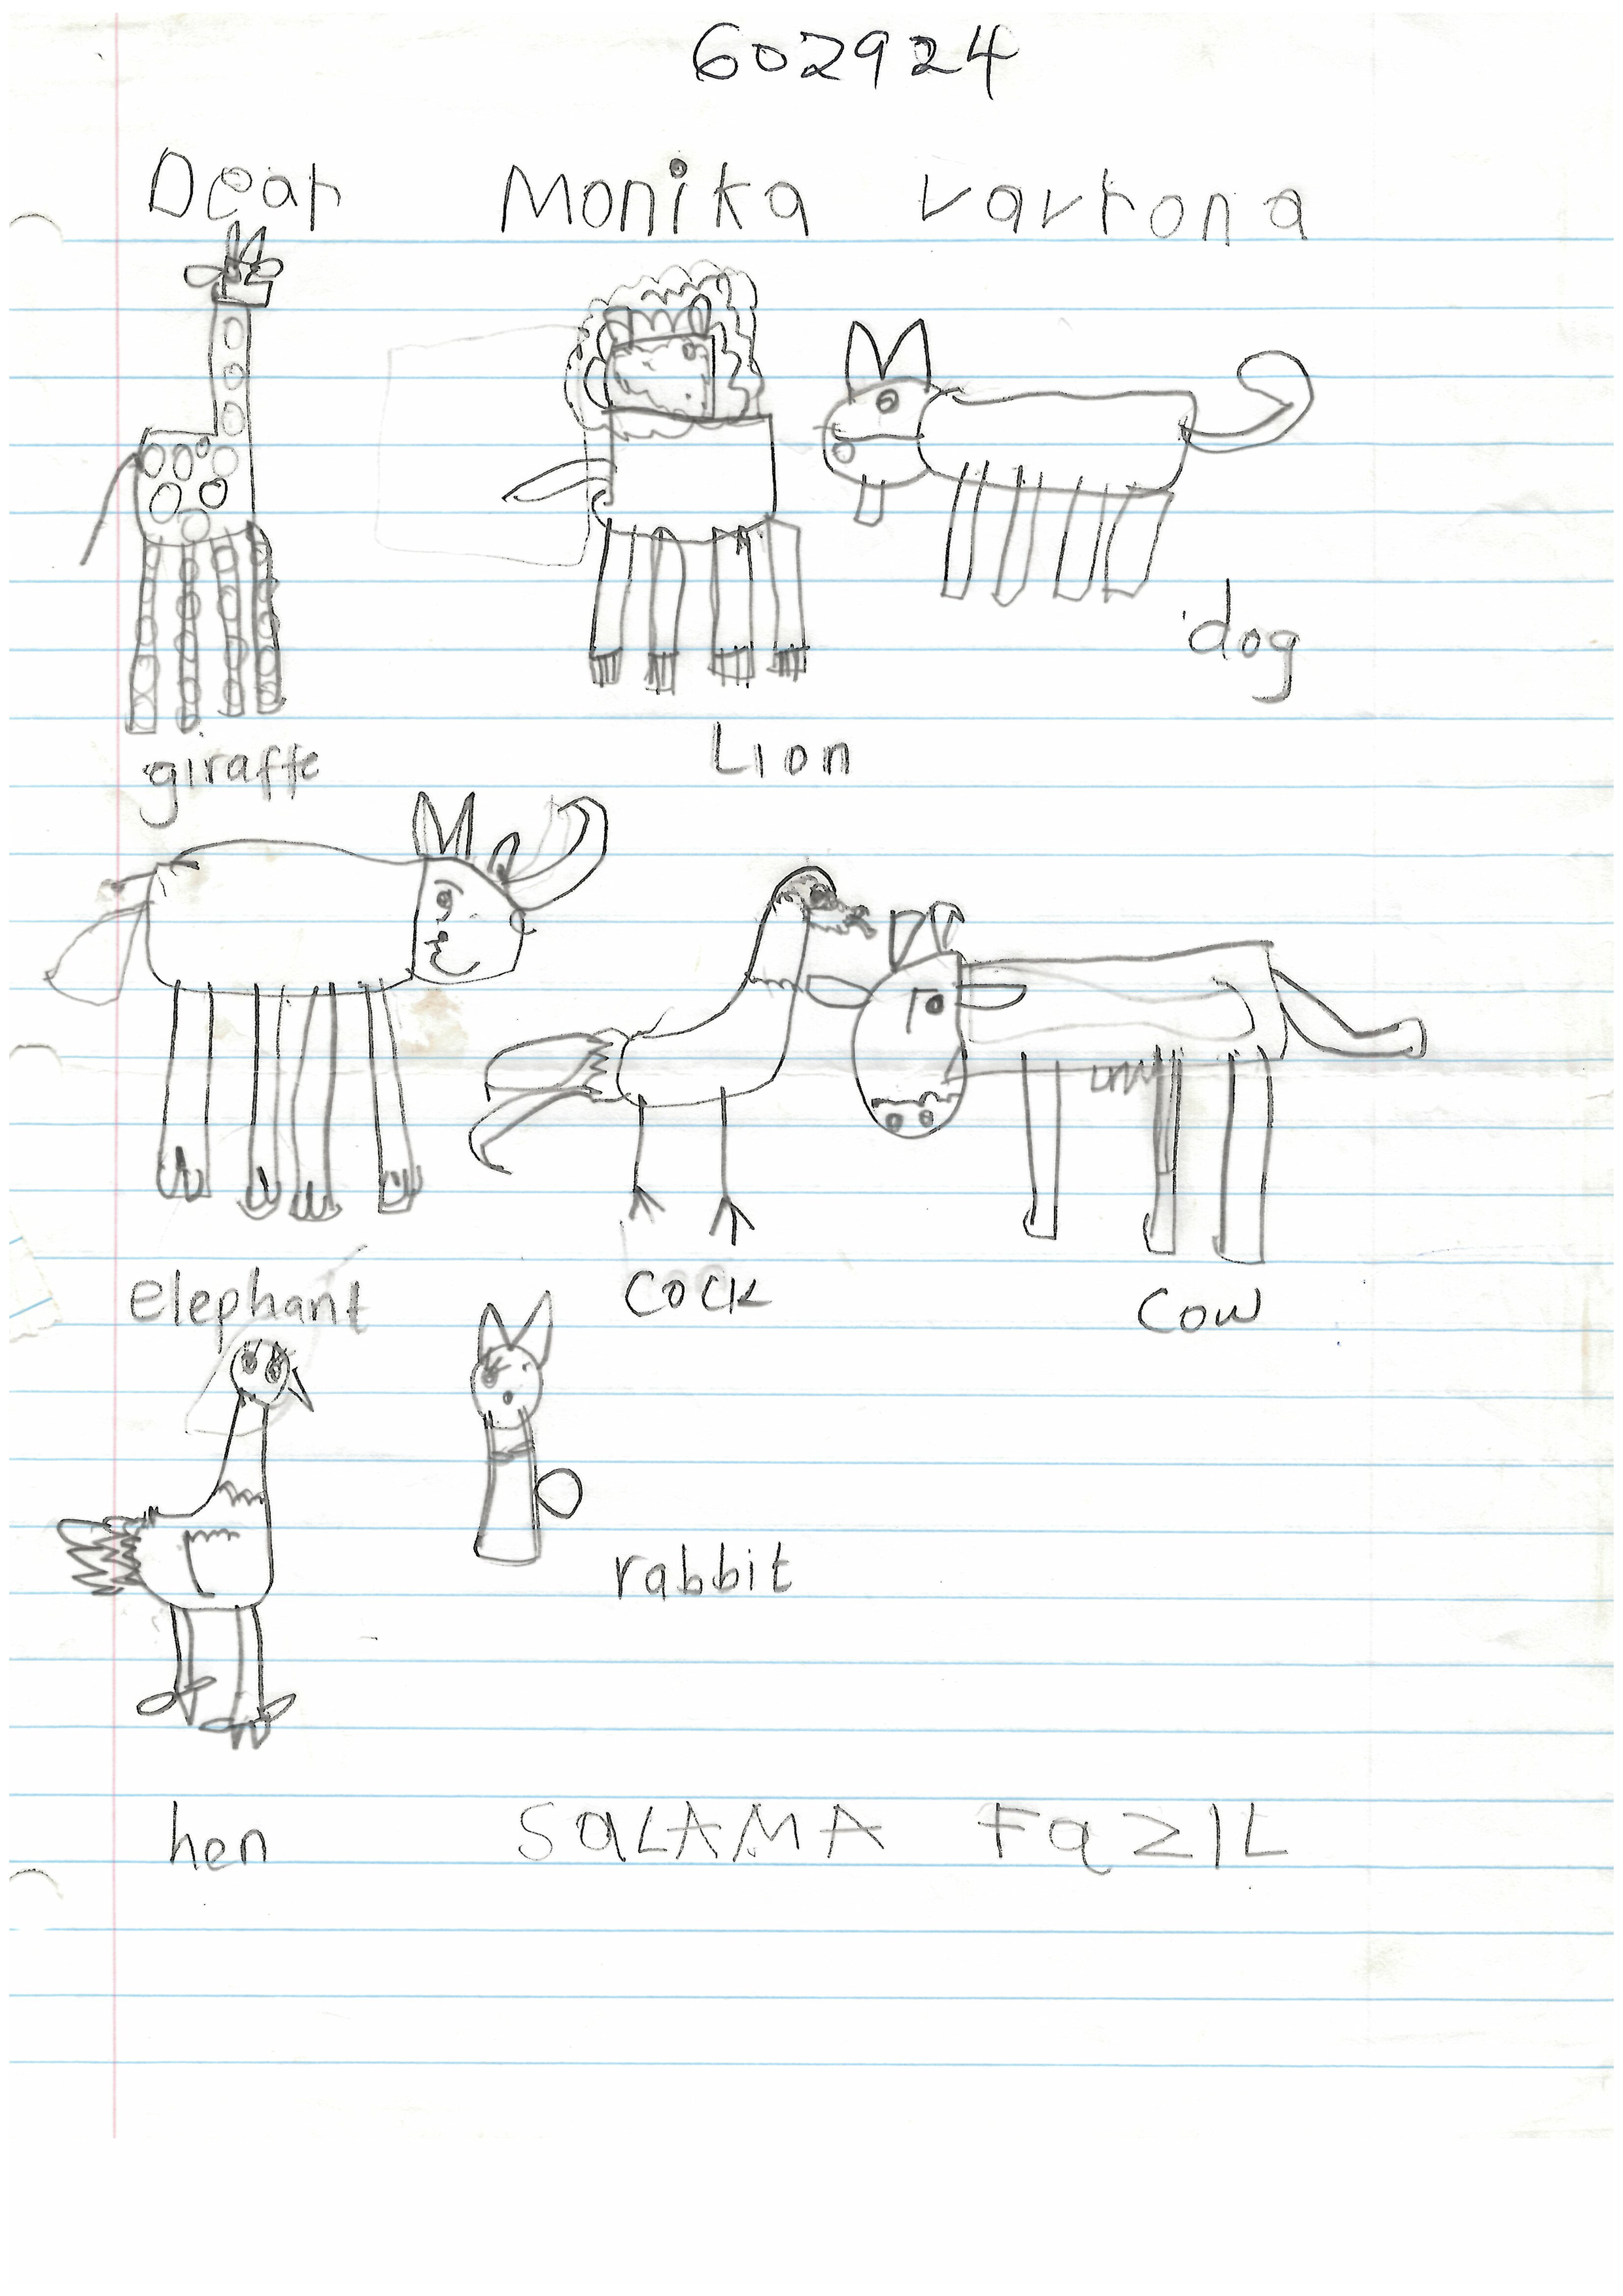 602924
Dear Monika vavrona
dog
giraffe Lion
elephant cock cow
rabbit
hen SaLAMA FaZIL